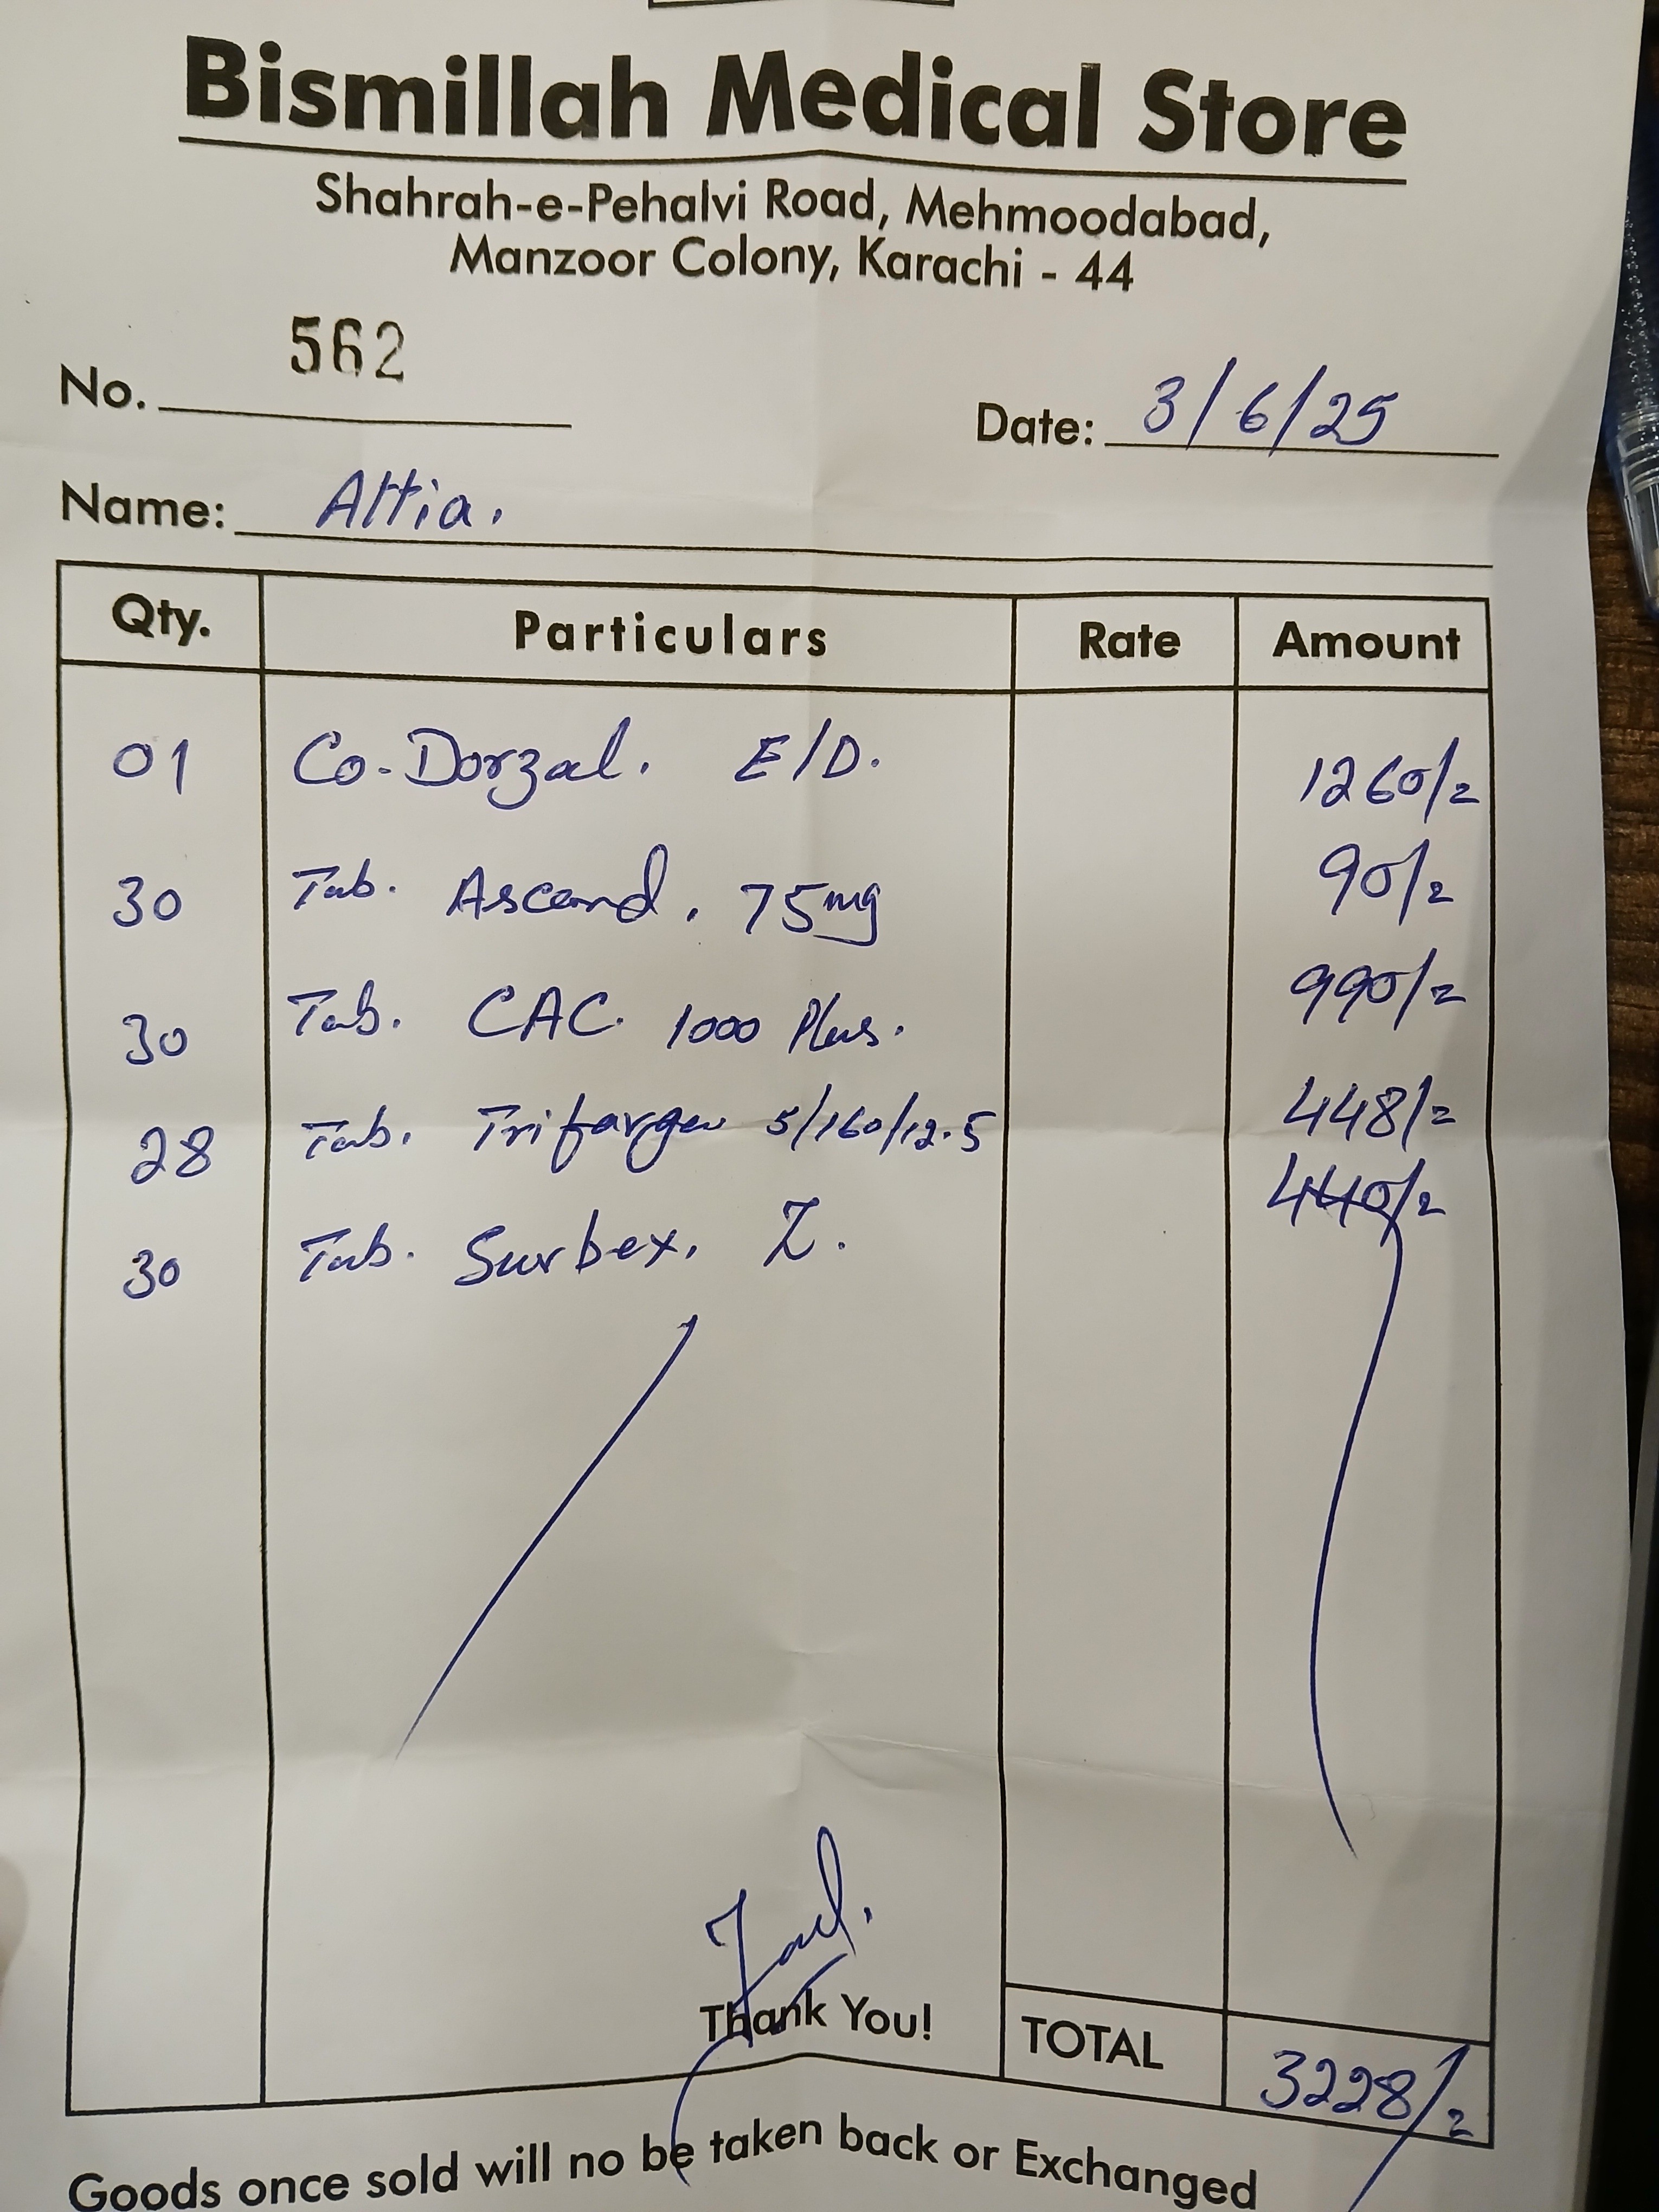 Bismillah Medical Store
Shahrah-e-Pehalvi Road, Mehmoodabad,
Manzoor Colony, Karachi - 44
No. 562
Date: 3/6/25
Name: Attia.
Qty. Particulars Rate Amount
01 Co-Dorzal. E/D. 1260/=
30 Tab. Ascard. 75mg 90/=
30 Tab. CAC. 1000 Plus. 990/=
28 Tab. Triforge 5/160/12.5 448/=
30 Tab. Surbex. Z. 440/=
Thank You!
TOTAL 3228/=
Goods once sold will no be taken back or Exchanged